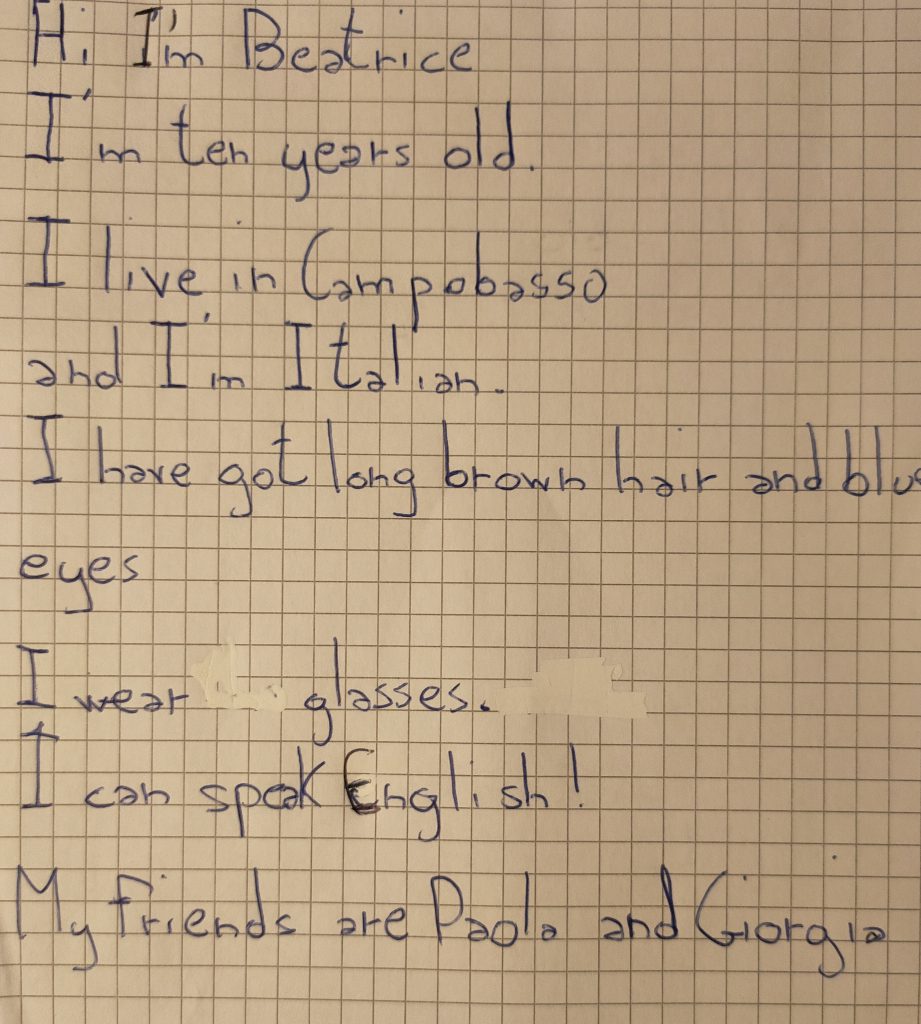 Hi I'm Beatrice
I'm ten years old.
I live in Campobasso
and I'm Italian.
I have got long brown hair and blue
eyes
I wear glasses.
I can speak English!
My friends are Paola and Giorgia